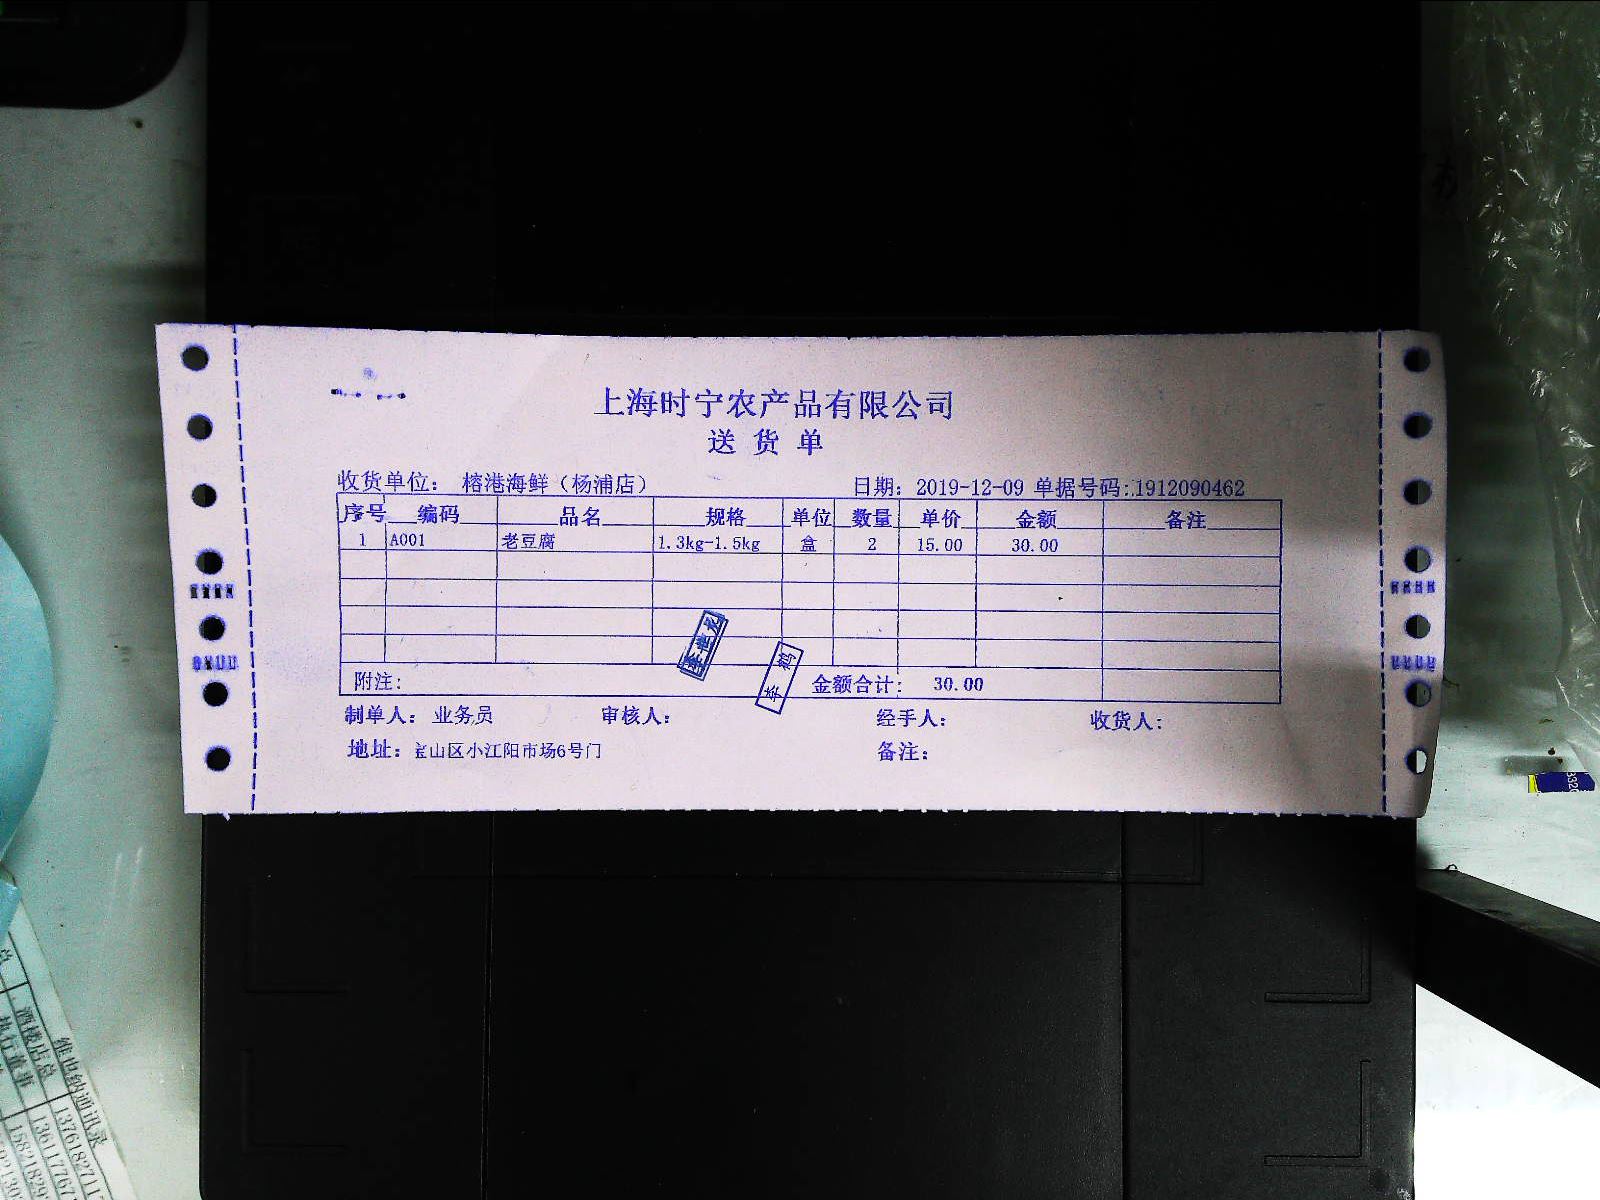 上海时宁农产品有限公司
送货单
收货单位： 榕港海鲜（杨浦店） 日期：2019-12-09 单据号码：1912090462
序号 编码 品名 规格 单位 数量 单价 金额 备注
1 A001 老豆腐 1.3kg-1.5kg 盒 2 15.00 30.00
附注： 金额合计： 30.00
制单人：业务员 审核人： 经手人： 收货人：
地址：宝山区小江阳市场6号门 备注：
李鹤
维也纳通讯录
酒楼店总
执行董事